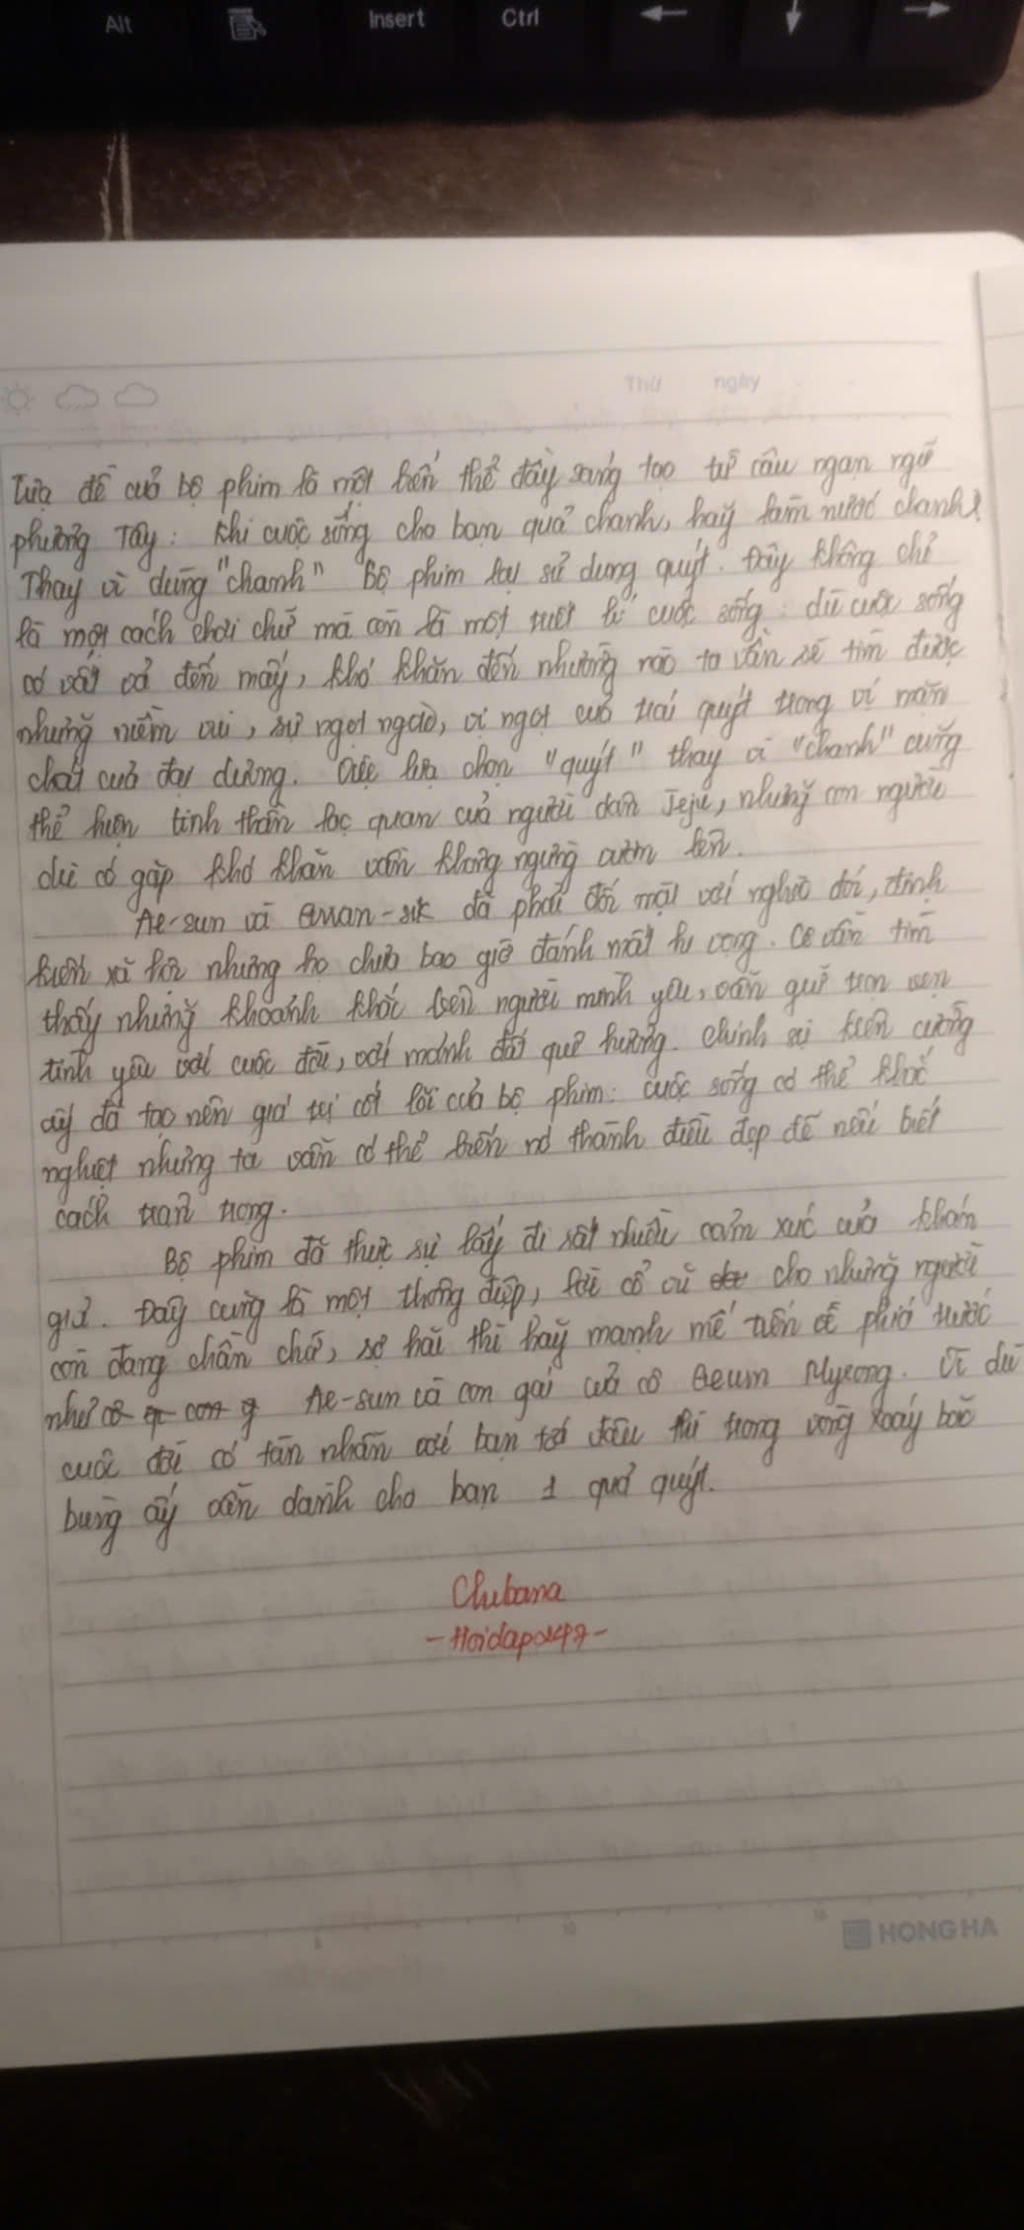 Alt Insert Ctrl ← ↓ →
Thứ ngày
Tựa đề của bộ phim là một biến thể đầy sáng tạo từ câu ngạn ngữ
phương Tây: Khi cuộc sống cho bạn quả chanh, hãy làm nước chanh!
Thay vì dùng "chanh" Bộ phim lại sử dụng quýt. Đây không chỉ
là một cách chơi chữ mà còn là một triết lí cuộc sống: dù cuộc sống
có vất vả đến mấy, khó khăn đến nhường nào ta vẫn sẽ tìm được
những niềm vui, sự ngọt ngào, vị ngọt của trái quýt trong vị mặn
chát của đại dương. Việc lựa chọn "quýt" thay vì "chanh" cũng
thể hiện tinh thần lạc quan của người dân Jeju, những con người
dù có gặp khó khăn vẫn không ngừng vươn lên.
Ae-sun và Gwan-sik đã phải đối mặt với nghèo đói, định
kiến xã hội nhưng họ chưa bao giờ đánh mất hi vọng. Họ vẫn tìm
thấy những khoảnh khắc bên người mình yêu, vẫn giữ trọn vẹn
tình yêu với cuộc đời, với mảnh đất quê hương. Chính sự kiên cường
ấy đã tạo nên giá trị cốt lõi của bộ phim: cuộc sống có thể khắc
nghiệt nhưng ta vẫn có thể biến nó thành điều đẹp đẽ nếu biết
cách trân trọng.
Bộ phim đã thực sự lấy đi rất nhiều cảm xúc của khán
giả. Đây cũng là một thông điệp, lời cổ vũ cho những người
còn đang chần chừ, sợ hãi thì hãy mạnh mẽ tiến về phía trước
như Ae-sun và con gái của cô Geum Myeong. Vì dù
cuộc đời có tàn nhẫn với bạn tới đâu thì trong vòng xoáy bão
bùng ấy vẫn dành cho bạn 1 quả quýt.
Chubana
-Hoidap247-
HONG HA